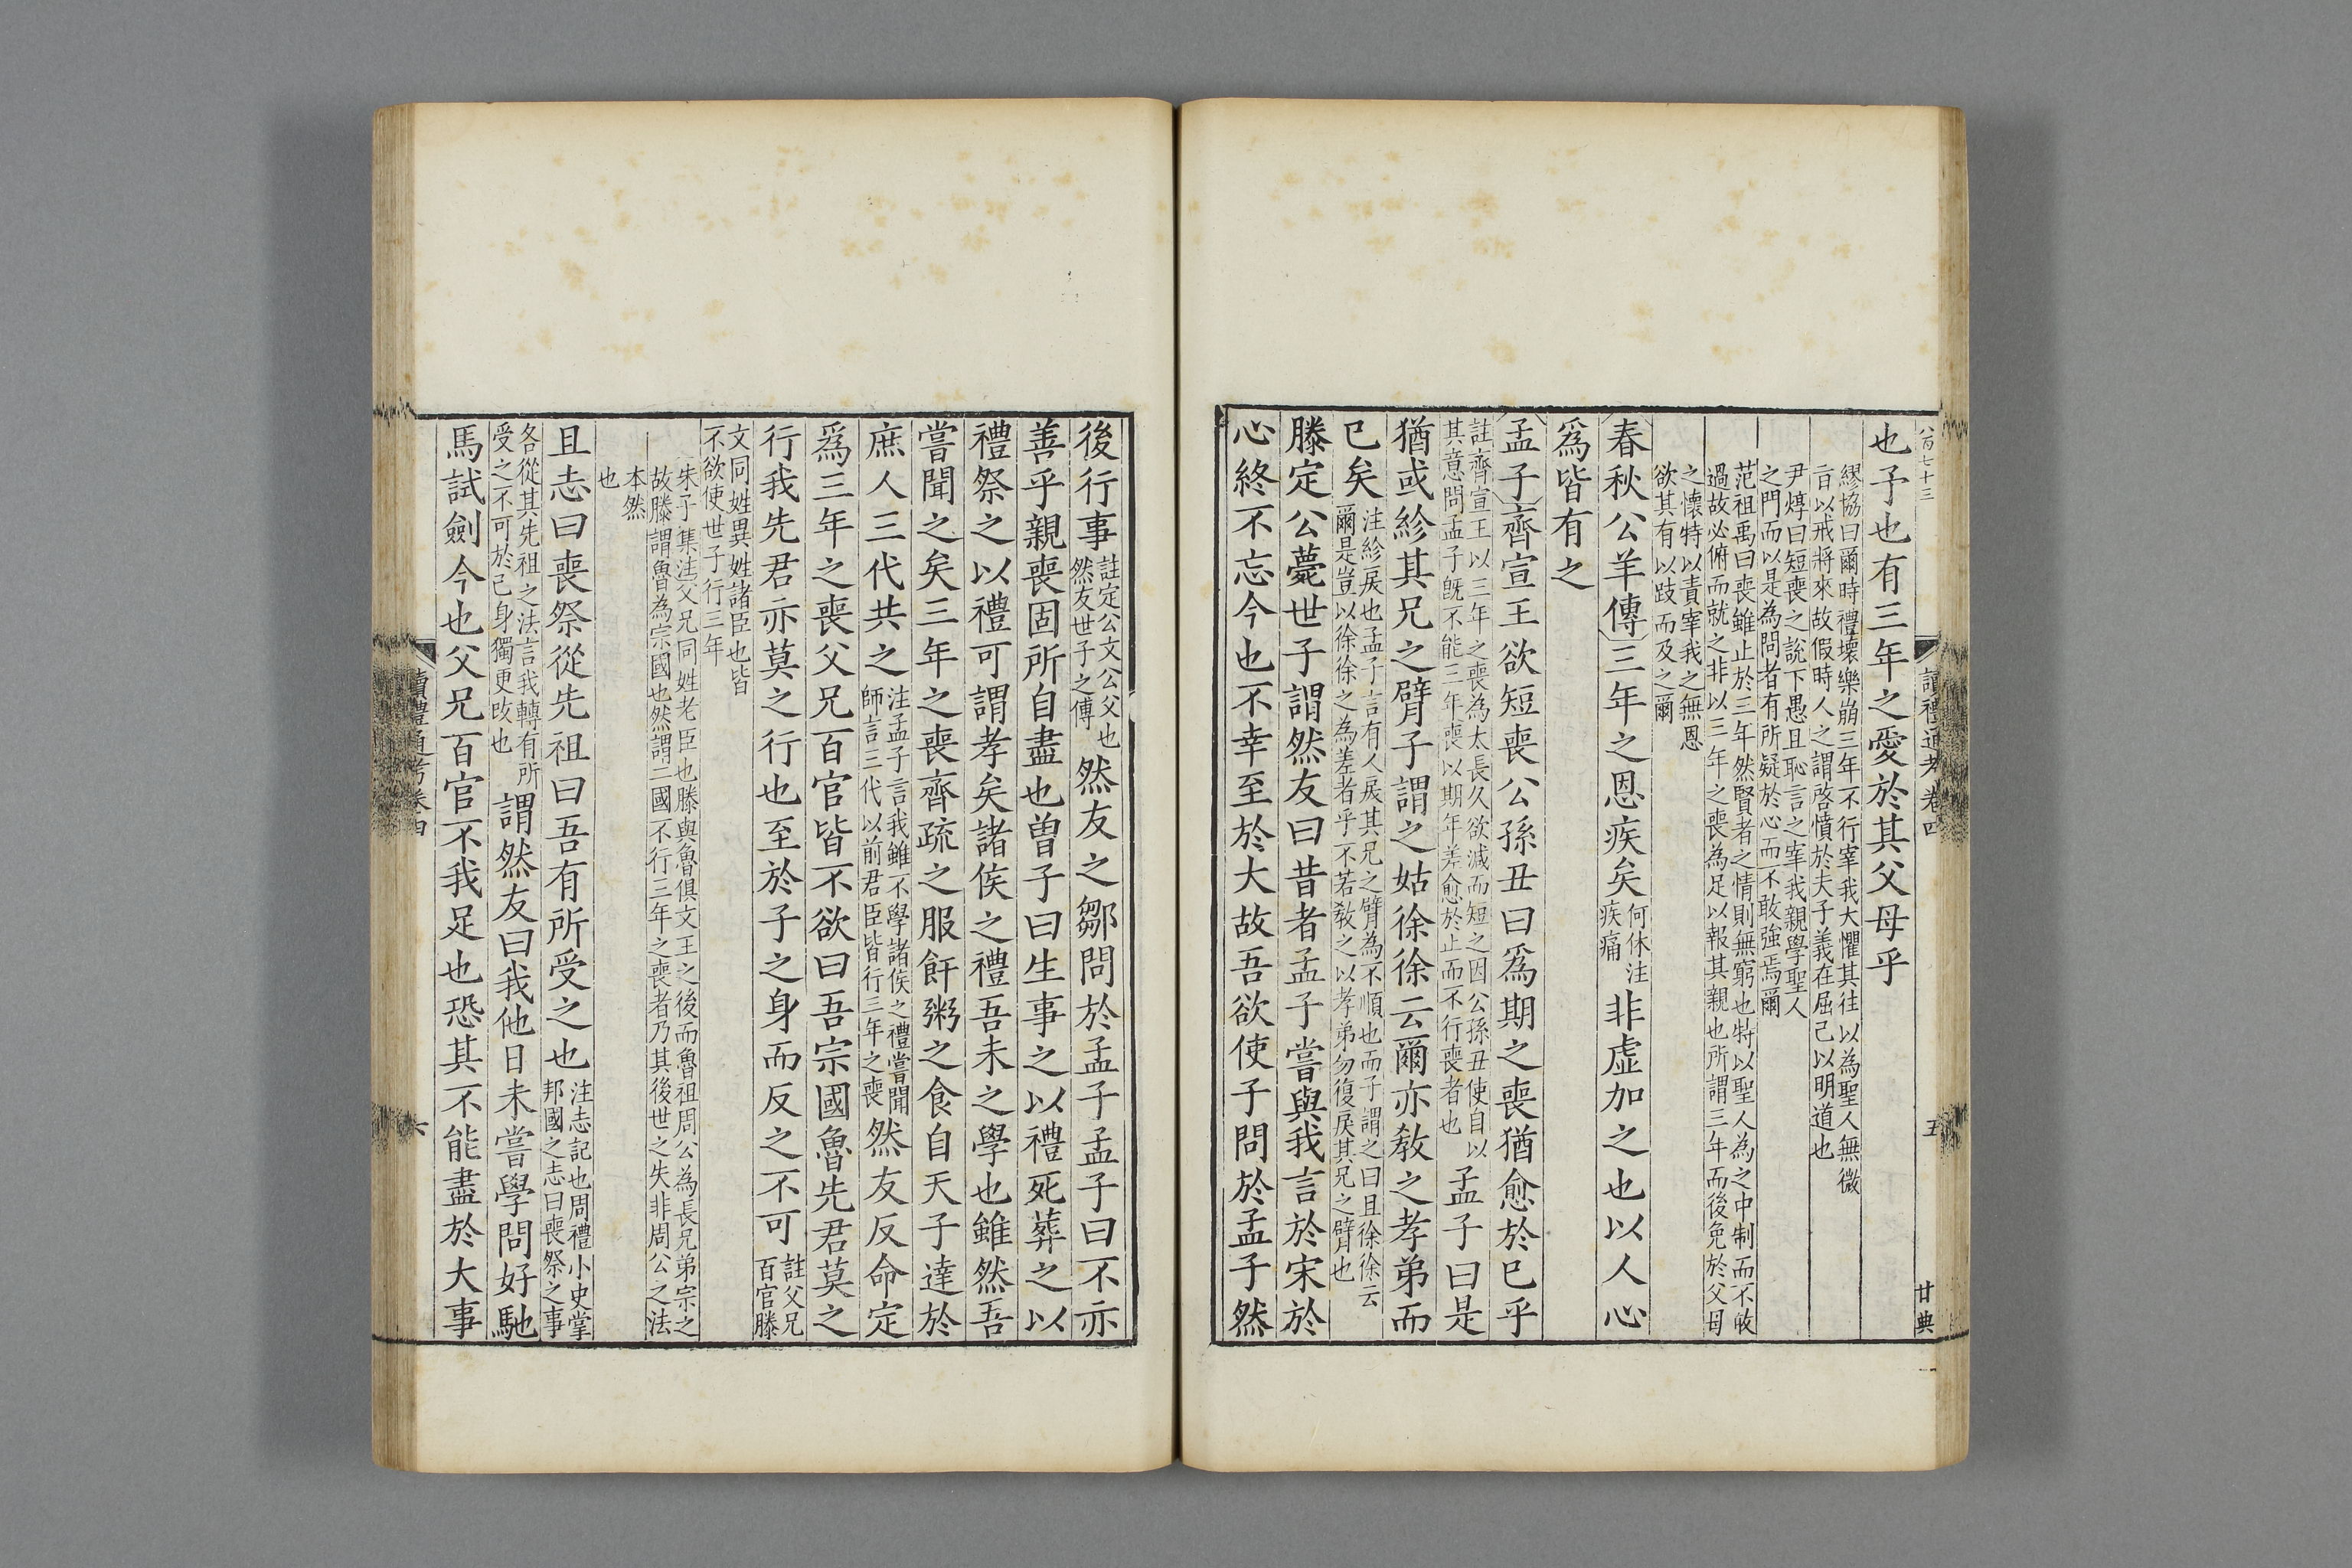 八百七十三
讀禮通考卷四
五
甘典
也予也有三年之愛於其父母乎
繆協曰爾時禮壞樂崩三年不行宰我大懼其往以為聖人無微
旨以戒將來故假時人之謂啓憤於夫子義在屈己以明道也
尹焞曰短喪之說下愚且恥言之宰我親學聖人
之門而以是為問者有所疑於心而不敢強焉爾
范祖禹曰喪雖止於三年然賢者之情則無窮也特以聖人為之中制而不敢
過故必俯而就之非以三年之喪為足以報其親也所謂三年而後免於父母
之懷特以責宰我之無恩
欲其有以跂而及之爾
春秋公羊傳三年之恩疾矣
何休注
疾痛
非虛加之也以人心
爲皆有之
孟子齊宣王欲短喪公孫丑曰爲期之喪猶愈於已乎
註齊宣王以三年之喪為太長久欲減而短之因公孫丑使自以
其意問孟子旣不能三年喪以期年差愈於止而不行喪者也
孟子曰是
猶或紾其兄之臂子謂之姑徐徐云爾亦敎之孝弟而
已矣
注紾戾也孟子言有人戾其兄之臂為不順也而子謂之曰且徐徐云
爾是豈以徐徐之為差者乎不若敎之以孝弟勿復戾其兄之臂也
滕定公薨世子謂然友曰昔者孟子嘗與我言於宋於
心終不忘今也不幸至於大故吾欲使子問於孟子然
後行事
註定公文公父也
然友世子之傅
然友之鄒問於孟子孟子曰不亦
善乎親喪固所自盡也曾子曰生事之以禮死葬之以
禮祭之以禮可謂孝矣諸侯之禮吾未之學也雖然吾
嘗聞之矣三年之喪齊疏之服飦粥之食自天子達於
庶人三代共之
注孟子言我雖不學諸侯之禮嘗聞
師言三代以前君臣皆行三年之喪
然友反命定
爲三年之喪父兄百官皆不欲曰吾宗國魯先君莫之
行我先君亦莫之行也至於子之身而反之不可
註父兄
百官滕
文同姓異姓諸臣也皆
不欲使世子行三年
朱子集注父兄同姓老臣也滕與魯俱文王之後而魯祖周公為長兄弟宗之
故滕謂魯為宗國也然謂二國不行三年之喪者乃其後世之失非周公之法
本然
也
且志曰喪祭從先祖曰吾有所受之也
注志記也周禮小史掌
邦國之志曰喪祭之事
各從其先祖之法言我轉有所
受之不可於己身獨更改也
謂然友曰我他日未嘗學問好馳
馬試劍今也父兄百官不我足也恐其不能盡於大事
讀禮通考卷四
六